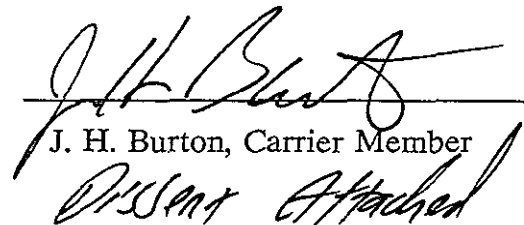 J H Burton
J. H. Burton, Carrier Member
Dissent Attached